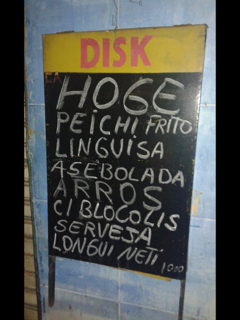 DISK
HOGE
PEICHI FRITO
LINGUISA
ASEBOLADA
ARROS
CI BLOCOLIS
SERVEJA
LONGUI NETI
1000